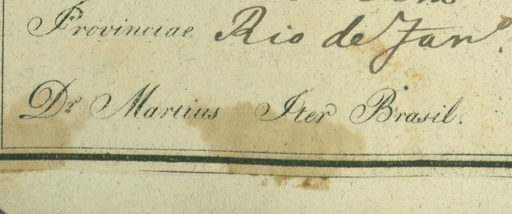 Provinciae Rio de Jan.º
Dr. Martius Iter Brasil.